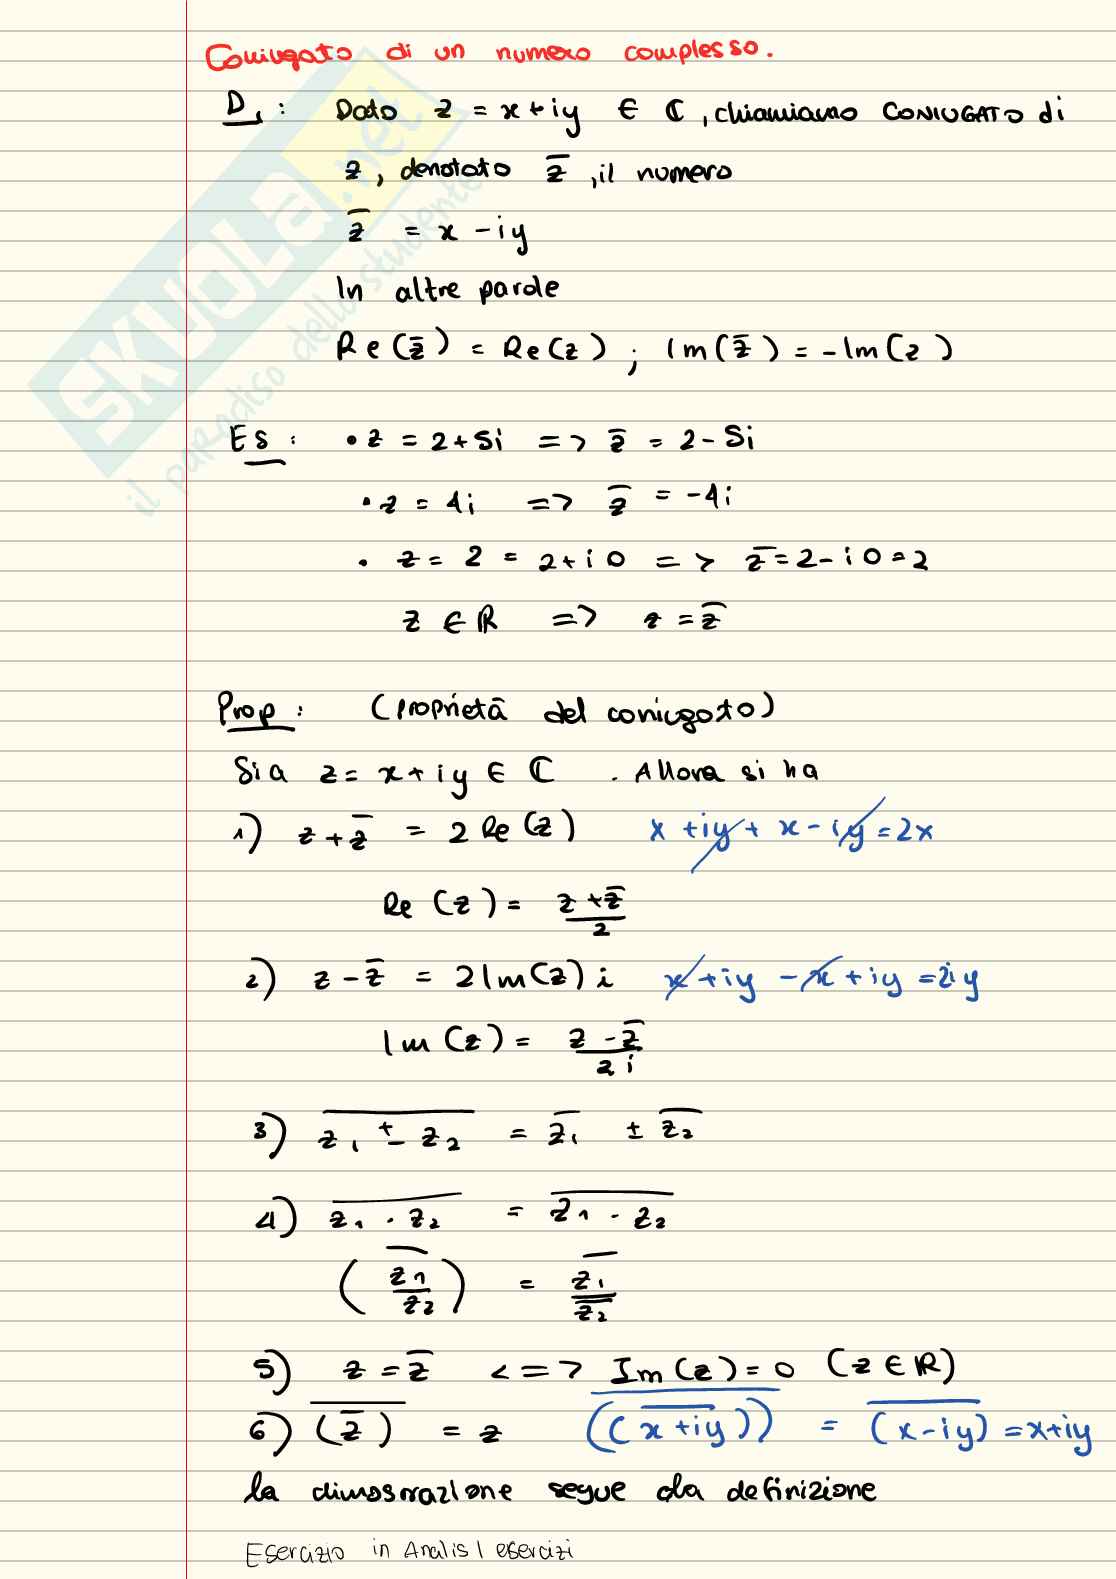 Coniugato di un numero complesso.
D₁: Dato z = x+iy ∈ ℂ, chiamiamo CONIUGATO di
z, denotato z̅, il numero
z̅ = x - iy
In altre parole
Re(z̅) = Re(z) ; Im(z̅) = -Im(z)
Es: • z = 2+5i => z̅ = 2-5i
• z = 4i => z̅ = -4i
• z = 2 = 2+i0 => z̅ = 2-i0 = 2
z ∈ ℝ => z = z̅
Prop: (proprietà del coniugato)
Sia z = x+iy ∈ ℂ . Allora si ha
1) z+z̅ = 2Re(z) x+iy+x-iy=2x
Re(z) = (z+z̅)/2
2) z-z̅ = 2Im(z)i x+iy-x+iy=2iy
Im(z) = (z-z̅)/2i
3) \overline{z₁ ± z₂} = \overline{z₁} ± \overline{z₂}
4) \overline{z₁ · z₂} = \overline{z₁ · z₂}
\overline{(z₁/z₂)} = \overline{z₁}/\overline{z₂}
5) z = z̅ <=> Im(z) = 0 (z ∈ ℝ)
6) \overline{(z̅)} = z \overline{((\overline{x+iy}))} = \overline{(x-iy)} = x+iy
la dimosrazione segue da definizione
Esercizio in Analisi esercizi
SKUOLA.net
il paradiso dello studente